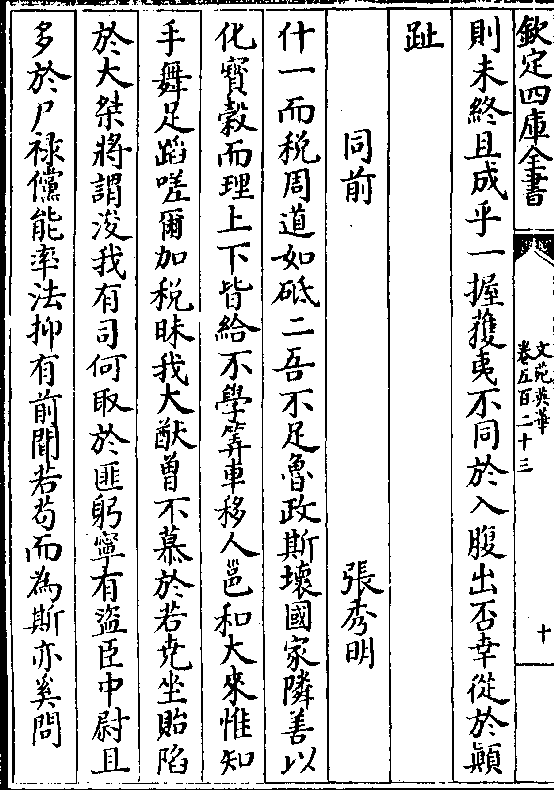 欽定四庫全書
文苑英華
卷五百二十三
十
則未終且成乎一握蒦夷不同於入腹出否幸從於顚
趾
同前
張秀明
什一而稅周道如砥二吾不足魯政斯壞國家隣善以
化寳榖而理上下皆給不學筭車移人邕和大來惟知
手舞足蹈嗟爾加稅昧我大猷曾不慕於若尭坐貽陷
於大桀將謂浚我有司何取於匪躬寧有盜臣中尉且
多於尸禄儻能率法抑有前聞若苟而為斯亦奚問